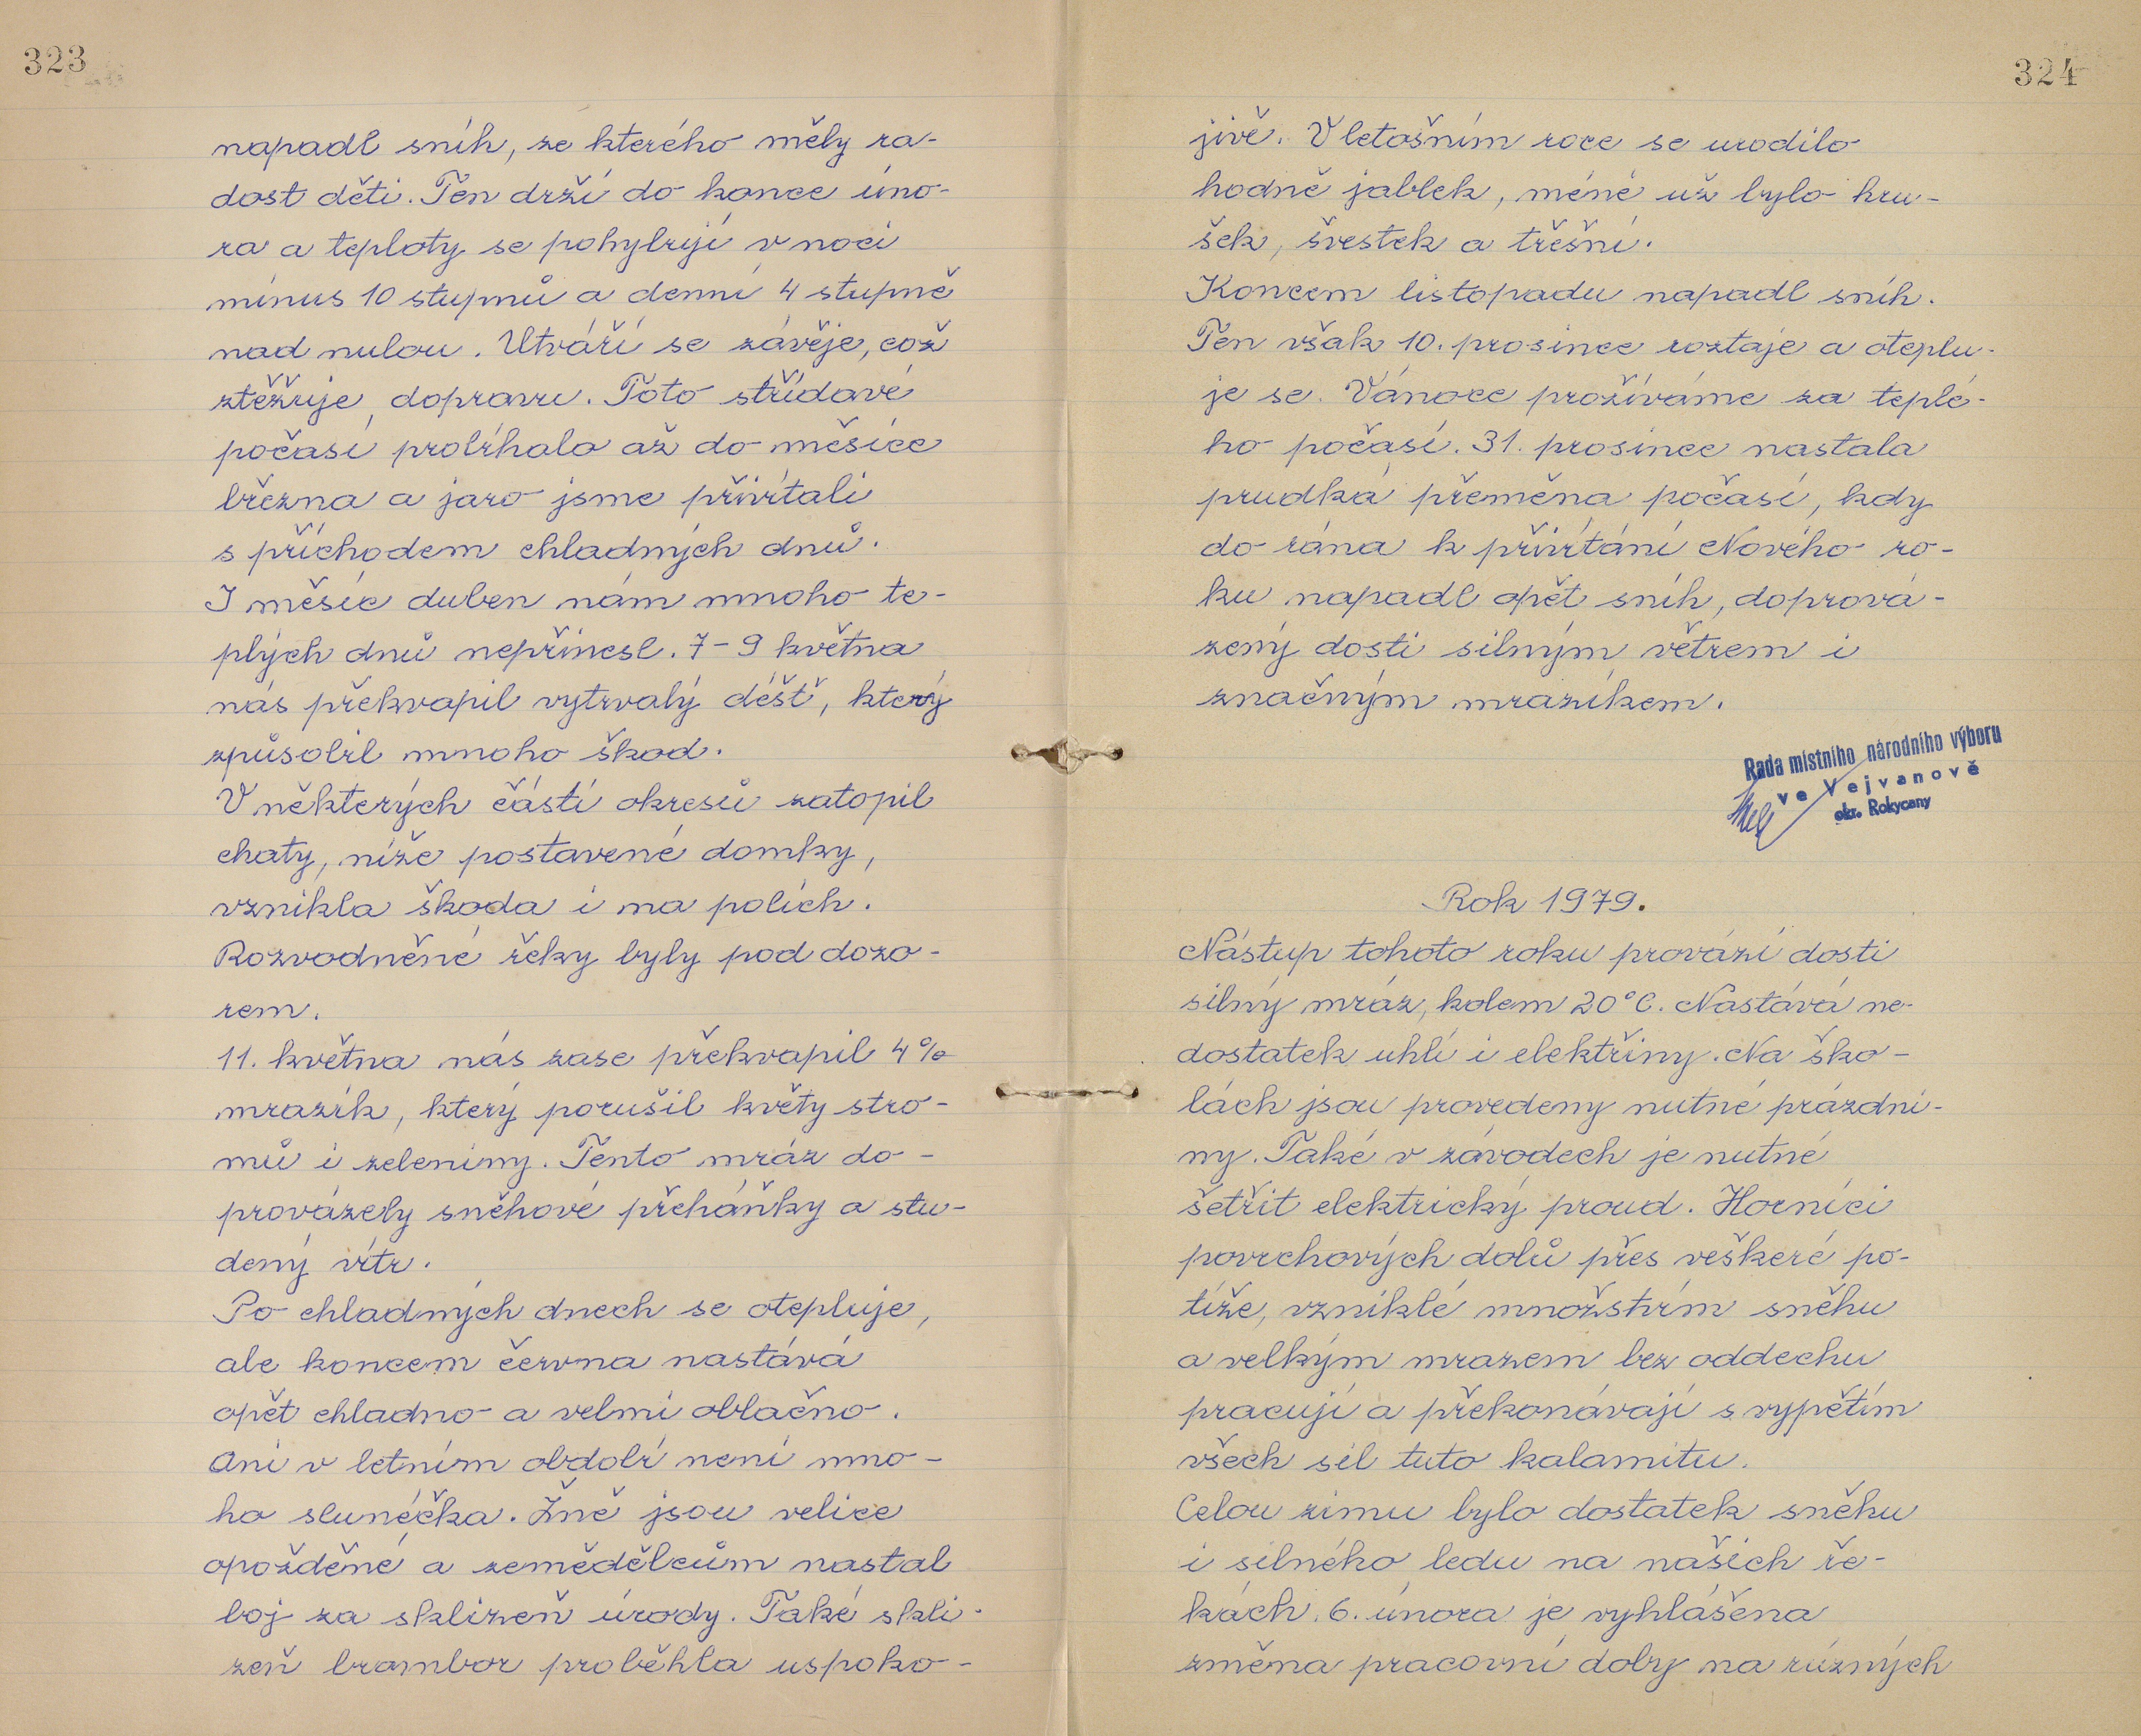 323
napadl sníh, ze kterého měly ra-
dost děti. Ten drží do konce úno-
ra a teploty se pohybují v noci
mínus 10 stupňů a denní 4 stupně
nad nulou. Utváří se závěje, což
ztěžuje dopravu. Toto střídavé
počasí probíhalo až do měsíce
března a jaro jsme přivítali
s příchodem chladných dnů.
I měsíc duben nám mnoho te-
plých dnů nepřinesl. 7-9 května
nás překvapil vytrvalý déšť, který
způsobil mnoho škod.
V některých částí okresů zatopil
chaty, níže postavené domky,
vznikla škoda i na polích.
Rozvodněné řeky byly pod dozo-
rem.
11. května nás zase překvapil 4%
mrazík, který porušil květy stro-
mů i zeleniny. Tento mráz do-
provázely sněhové přeháňky a stu-
dený vítr.
Po chladných dnech se otepluje,
ale koncem června nastává
opět chladno a velmi oblačno.
Ani v letním období není mno-
ho sluníčka. Žně jsou velice
opožděné a zemědělcům nastal
boj za sklizeň úrody. Také skli-
zeň brambor proběhla uspoko-
324
jivě. V letošním roce se urodilo
hodně jablek, méně už bylo hru-
šek, švestek a třešní.
Koncem listopadu napadl sníh.
Ten však 10. prosince roztaje a oteplu-
je se. Vánoce prožíváme za teplé-
ho počasí. 31. prosince nastala
prudká přeměna počasí, kdy
do rána k přivítání Nového ro-
ku napadl opět sníh, doprová-
zený dosti silným větrem i
značným mrazíkem.
Rada místního národního výboru
ve Vejvanově
okr. Rokycany
Rok 1979.
Nástup tohoto roku provází dosti
silný mráz, kolem 20°C. Nastává ne-
dostatek uhlí i elektřiny. Na ško-
lách jsou provedeny nutné prázdni-
ny. Také v závodech je nutné
šetřit elektrický proud. Horníci
povrchových dolů přes veškeré po-
tíže, vzniklé množstvím sněhu
a velkým mrazem bez oddechu
pracují a překonávají s vypětím
všech sil tuto kalamitu.
Celou zimu bylo dostatek sněhu
i silného ledu na našich ře-
kách. 6. února je vyhlášena
změna pracovní doby na různých